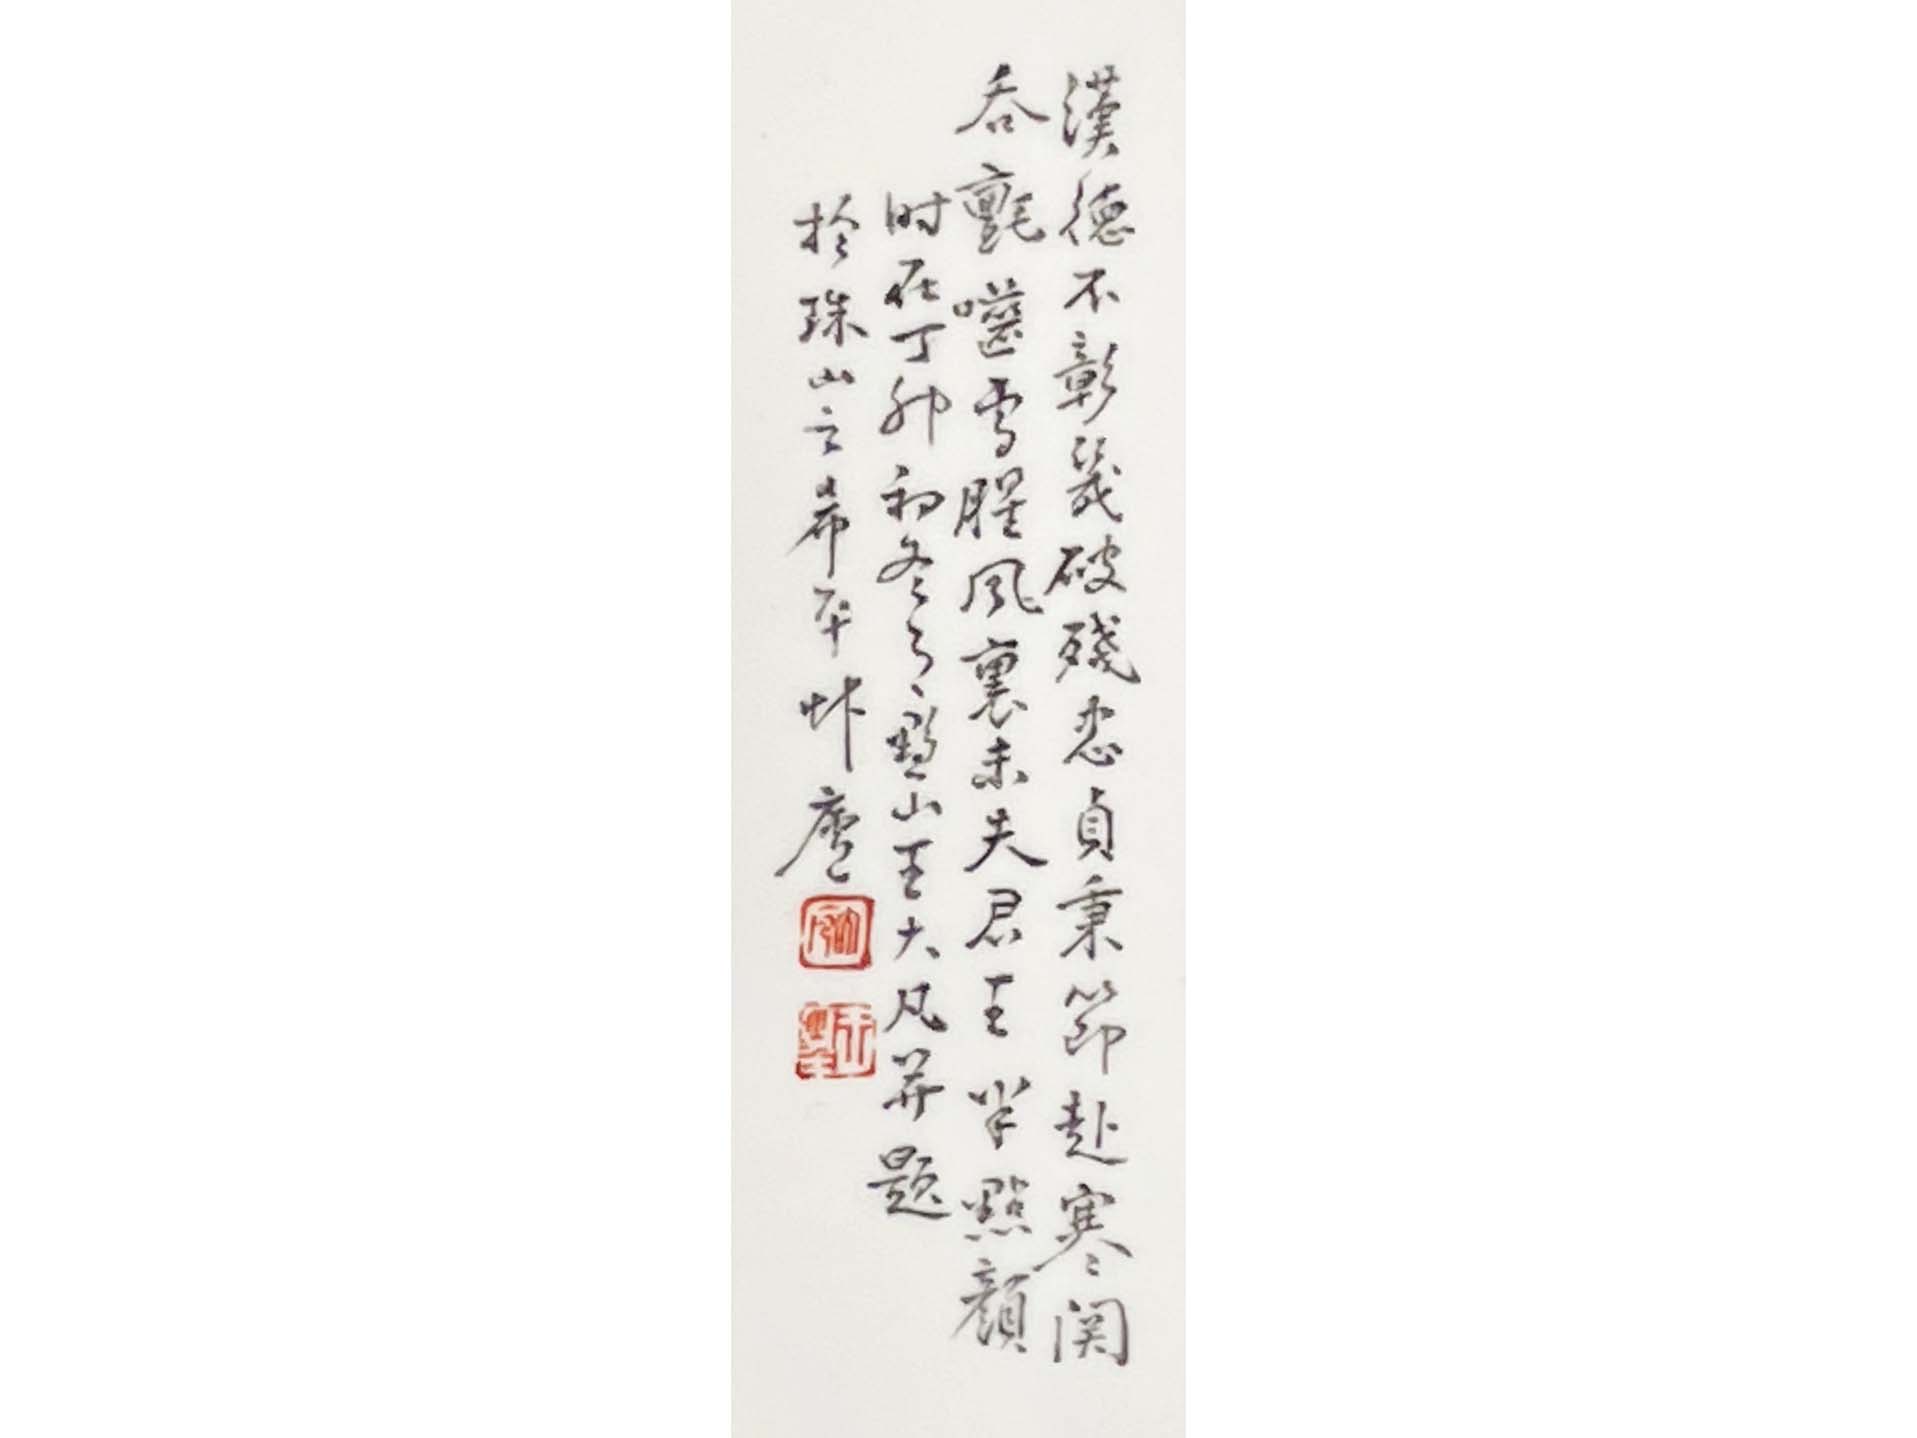 漢德不彰幾破殘忠貞秉節赴寒関
吞氈嚙雪腥風裏未失君王半點顏
时在丁卯初冬月黟山王大凡并题
於珠山之希平艸廬